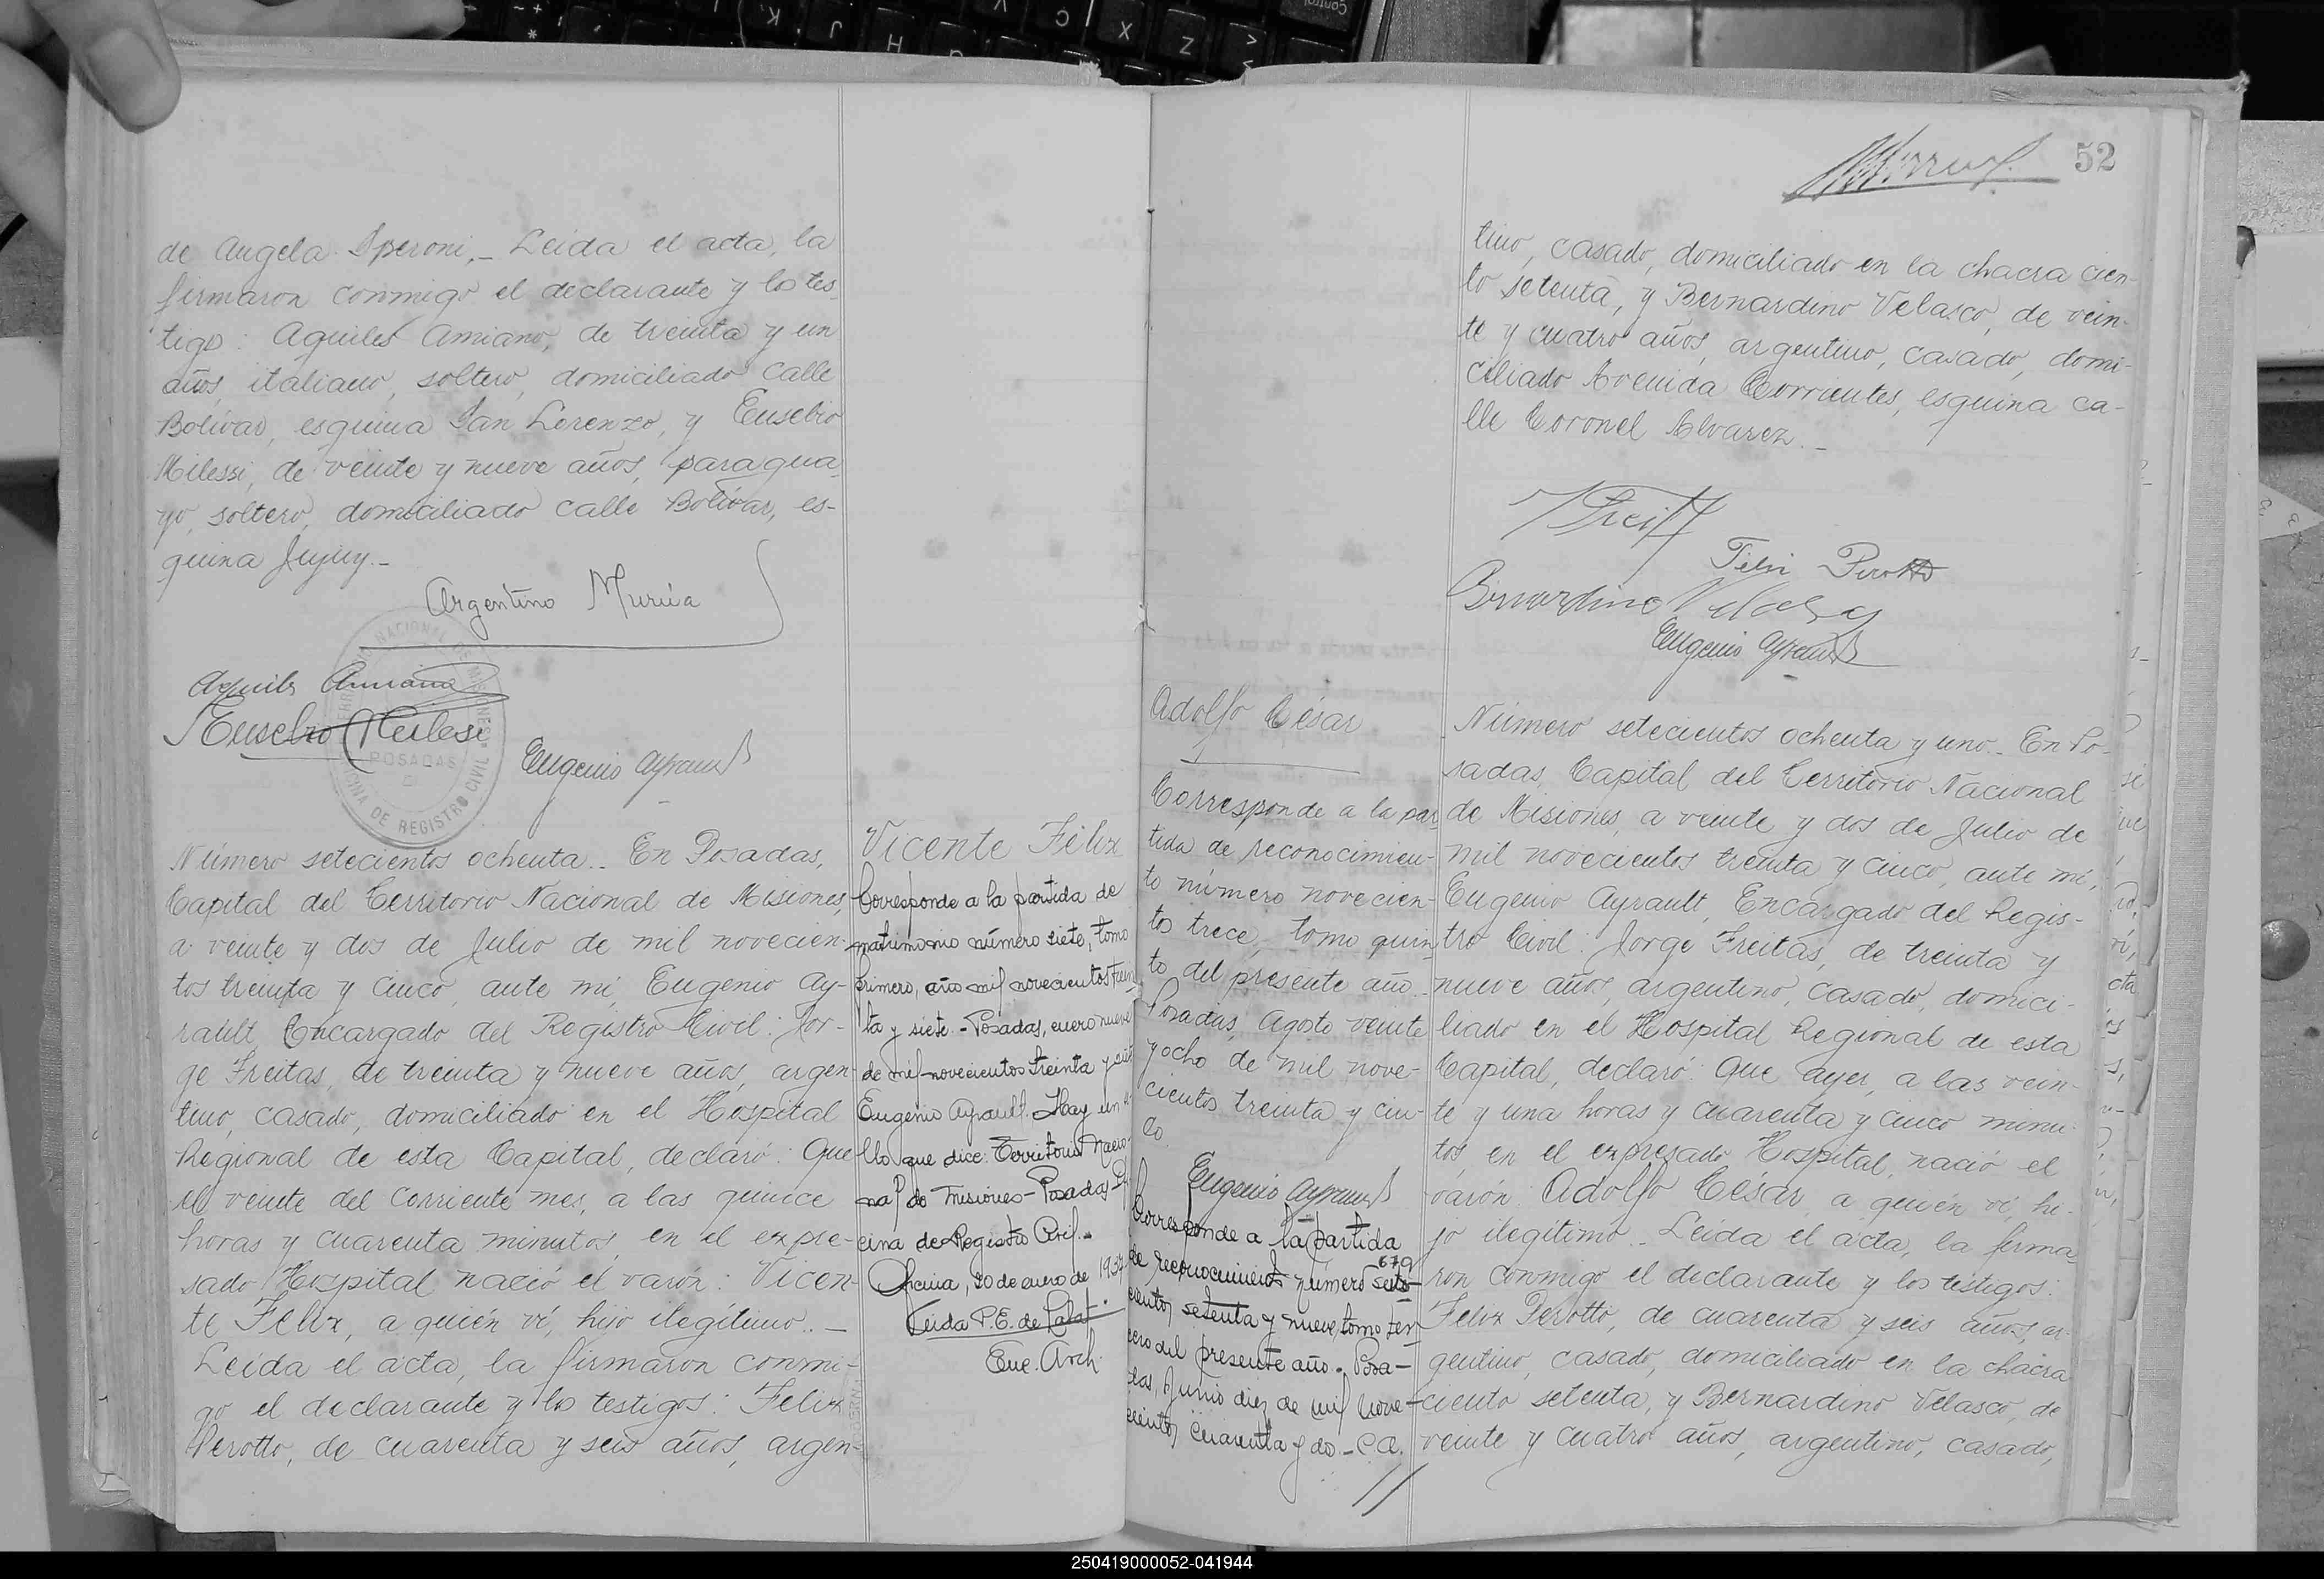 de Angela Speroni._ Leída el acta, la
firmaron conmigo el declarante y los tes-
tigos: Aquiles Amiano, de treinta y un
años, italiano, soltero, domiciliado calle
Bolívar, esquina San Lorenzo, y Eusebio
Milessi, de veinte y nueve años, paragua-
yo, soltero, domiciliado calle Bolívar, es-
quina Jujuy._
Argentino Murúa
Aquiles Amiano
Eusebio Milesi
Eugenio Ayrault
POSADAS
OFICINA DE REGISTRO CIVIL
Número setecientos ochenta._ En Posadas,
Capital del Territorio Nacional de Misiones,
a veinte y dos de Julio de mil novecien-
tos treinta y cinco, ante mí, Eugenio Ay-
rault, Encargado del Registro Civil: Jor-
ge Freitas, de treinta y nueve años, argen-
tino, casado, domiciliado en el Hospital
Regional de esta Capital, declaró: Que
el veinte del corriente mes, a las quince
horas y cuarenta minutos, en el expre-
sado Hospital nació el varón: Vicen-
te Félix, a quién ví, hijo ilegítimo._
Leída el acta, la firmaron conmi-
go el declarante y los testigos: Felix
Perotto, de cuarenta y seis años, argen-
Vicente Félix
Corresponde a la partida de
matrimonio número siete, tomo
primero, año mil novecientos trein-
ta y siete.- Posadas, enero nueve
de mil novecientos treinta y siete
Eugenio Ayrault. Hay un
llo que dice: Territorio Nacio-
nal de Misiones - Posadas
cina de Registro Civil.-
Oficina, 20 de enero de 1937
Enc. Arch.
52
tino, casado, domiciliado en la chacra cien-
to setenta, y Bernardino Velasco, de vein-
te y cuatro años, argentino, casado, domi-
ciliado Avenida Corrientes, esquina ca-
lle Coronel Alvarez._
Felix Perotto
Bernardino Velasco
Eugenio Ayrault
Adolfo César
Corresponde a la par-
tida de reconocimien-
to número novecien-
tos trece, tomo quin-
to del presente año.
Posadas, Agosto veinte
y ocho de mil nove-
cientos treinta y cin-
co.
Eugenio Ayrault
Corresponde a la partida
679
de reconocimiento número seis-
cientos setenta y nueve, tomo ter-
cero del presente año.- Posa-
das, Junio diez de mil nove-
cientos cuarenta y do - C.A.
Número setecientos ochenta y uno._ En Po-
sadas, Capital del Territorio Nacional
de Misiones, a veinte y dos de Julio de
mil novecientos treinta y cinco, ante mí,
Eugenio Ayrault, Encargado del Regis-
tro Civil: Jorge Freitas, de treinta y
nueve años, argentino, casado, domici-
liado en el Hospital Regional de esta
Capital, declaró: Que ayer, a las vein-
te y una horas y cuarenta y cinco minu-
tos, en el expresado Hospital, nació el
varón: Adolfo César, a quién ví, hi-
jo ilegítimo._ Leída el acta, la firma-
ron conmigo el declarante y los testigos:
Felix Perotto, de cuarenta y seis años, ar-
gentino, casado, domiciliado en la chacra
ciento setenta, y Bernardino Velasco, de
veinte y cuatro años, argentino, casado,
250419000052-041944